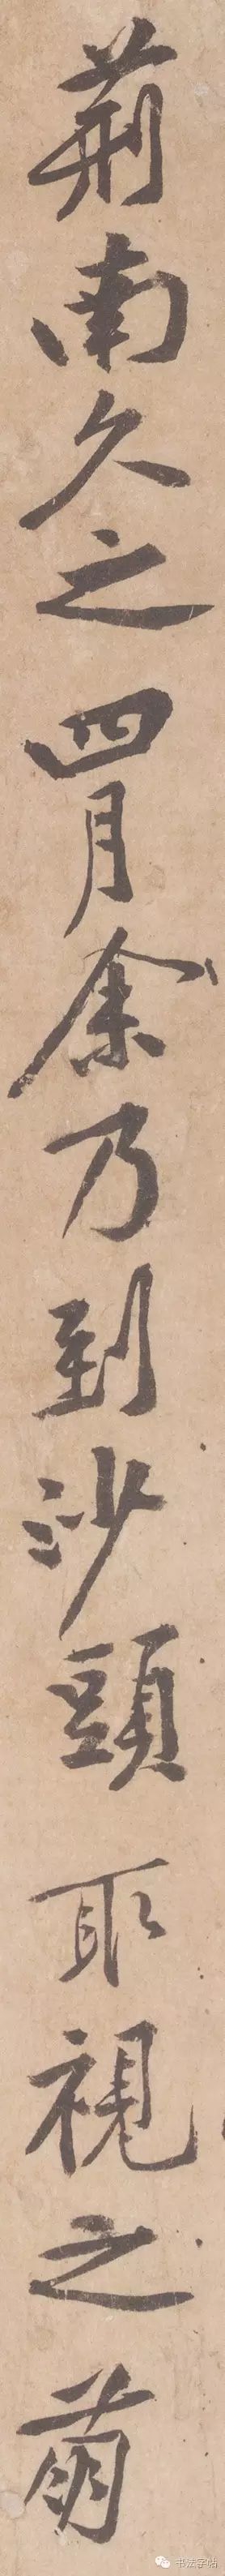 荊南久之四月余乃到沙頭取視之萌
书法字帖